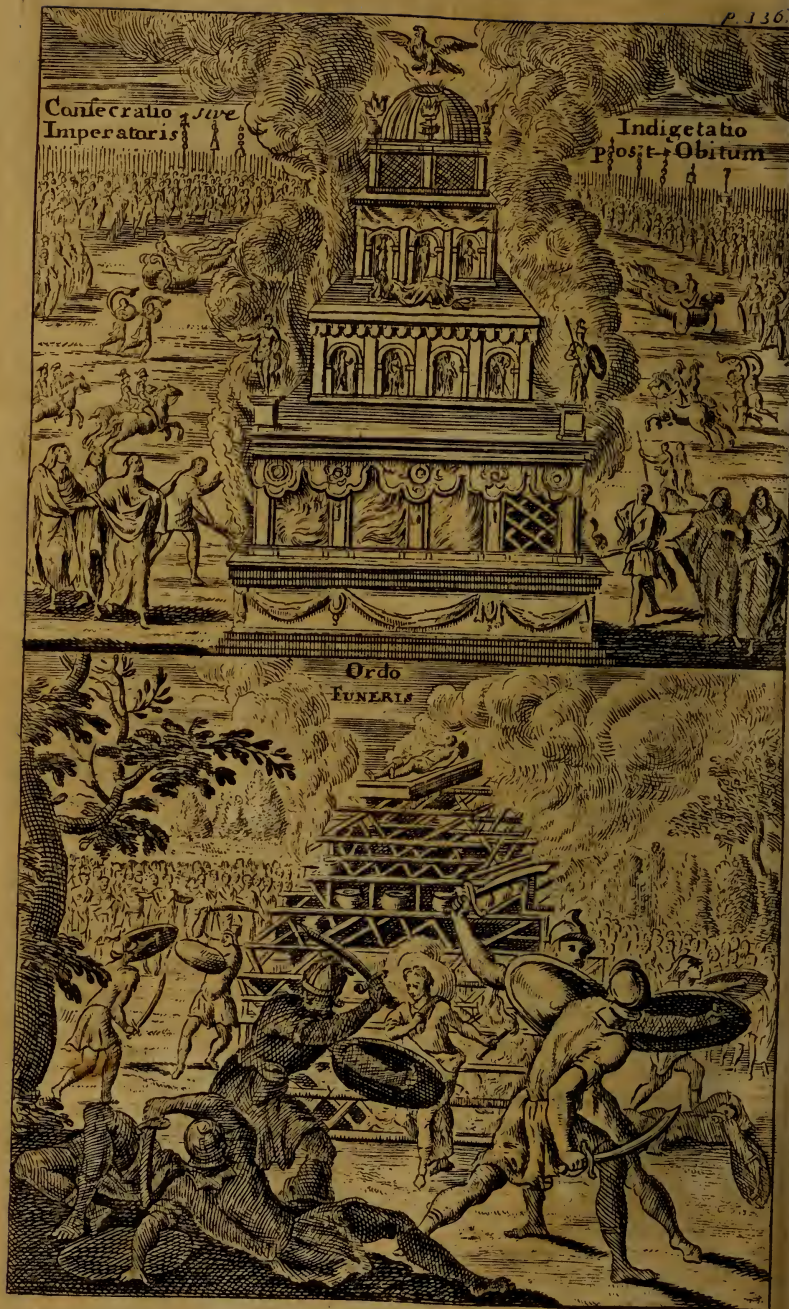 P. 336.
Consecratio sive
Imperatoris
Indigetatio
post Obitum
Ordo
FUNERIS